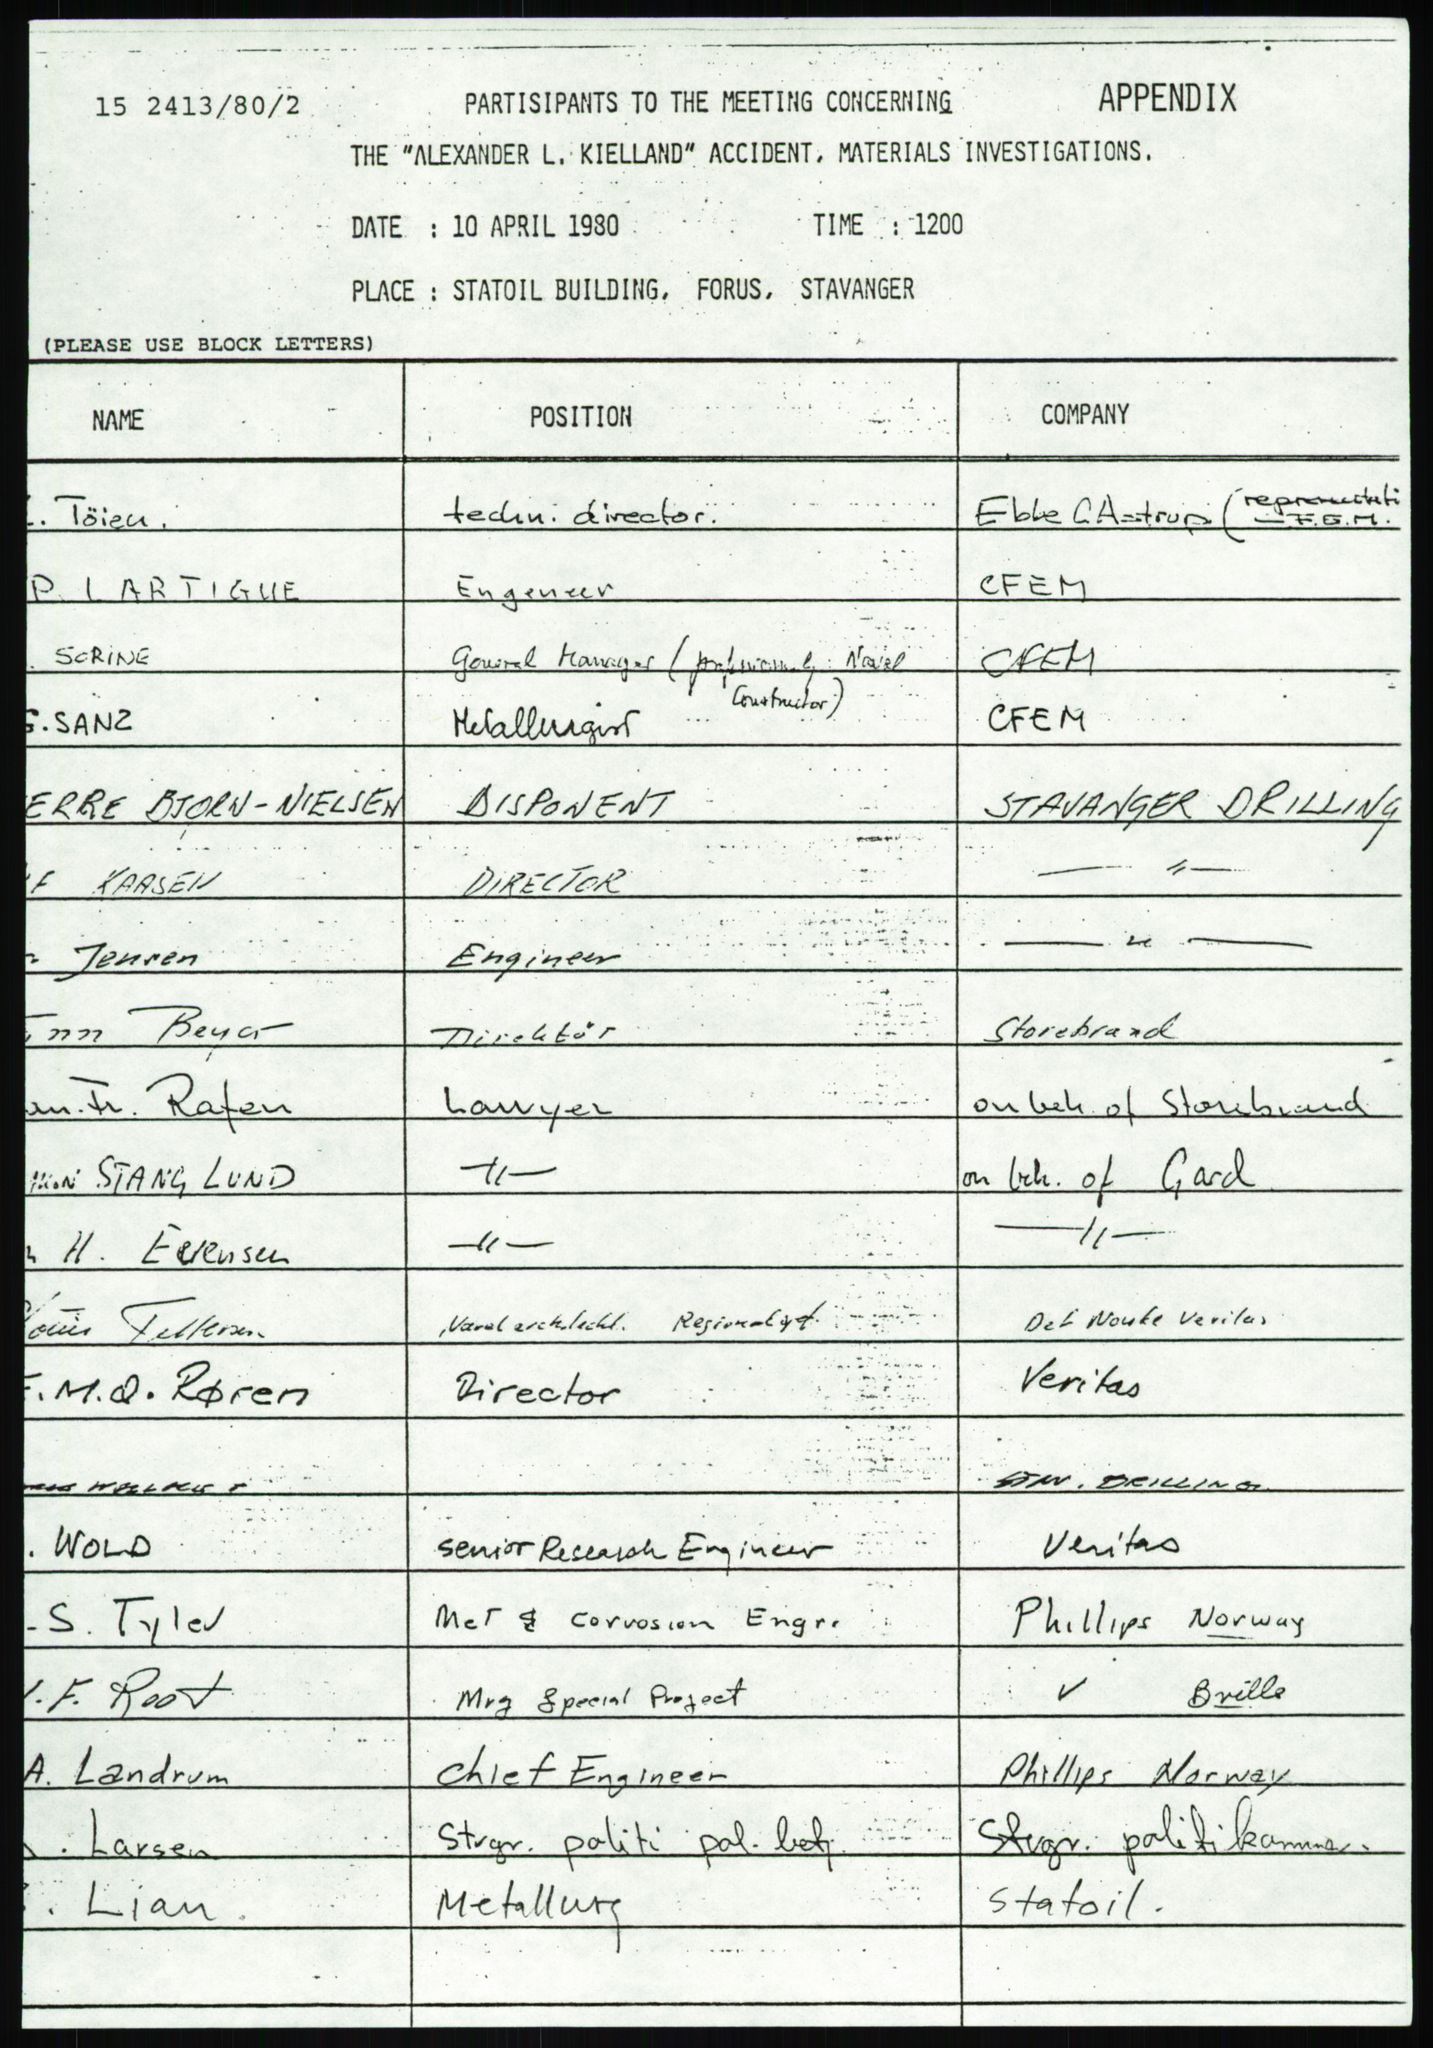 15 2413/80/2 PARTISIPANTS TO THE MEETING CONCERNING APPENDIX
THE "ALEXANDER L. KIELLAND" ACCIDENT, MATERIALS INVESTIGATIONS.
DATE : 10 APRIL 1980 TIME : 1200
PLACE : STATOIL BUILDING, FORUS, STAVANGER
(PLEASE USE BLOCK LETTERS)
NAME POSITION COMPANY
. Töien. techn. director. Ebbe C Astrup (
P. LARTIGUE Engeneer CFEM
. SORINE General Manager ( Naval CFEM
Constructor)
G. SANZ Metallurgist CFEM
ERRE BJORN-NIELSEN DISPONENT STAVANGER DRILLING
KAASEN DIRECTOR — " —
Jensen Engineer — " —
Finn Beyer Direktör Storebrand
an. Fr. Rafen Lawyer on beh. of Storebrand
STANG LUND — " — on beh. of Gard
H. — " — — " —
Naval architect. Det Norske Veritas
F.M.Q. Røren Director Veritas
STAV. DRILLING
. WOLD senior Research Engineer Veritas
. S. Tyler Met & Corrosion Engr. Phillips Norway
. F. Root Mrg Special Project
A. Landrum Chief Engineer Phillips Norway
. Larsen Strgr. politi pol. betj. Stvgr. politikammer.
. Lian. Metallurg Statoil.